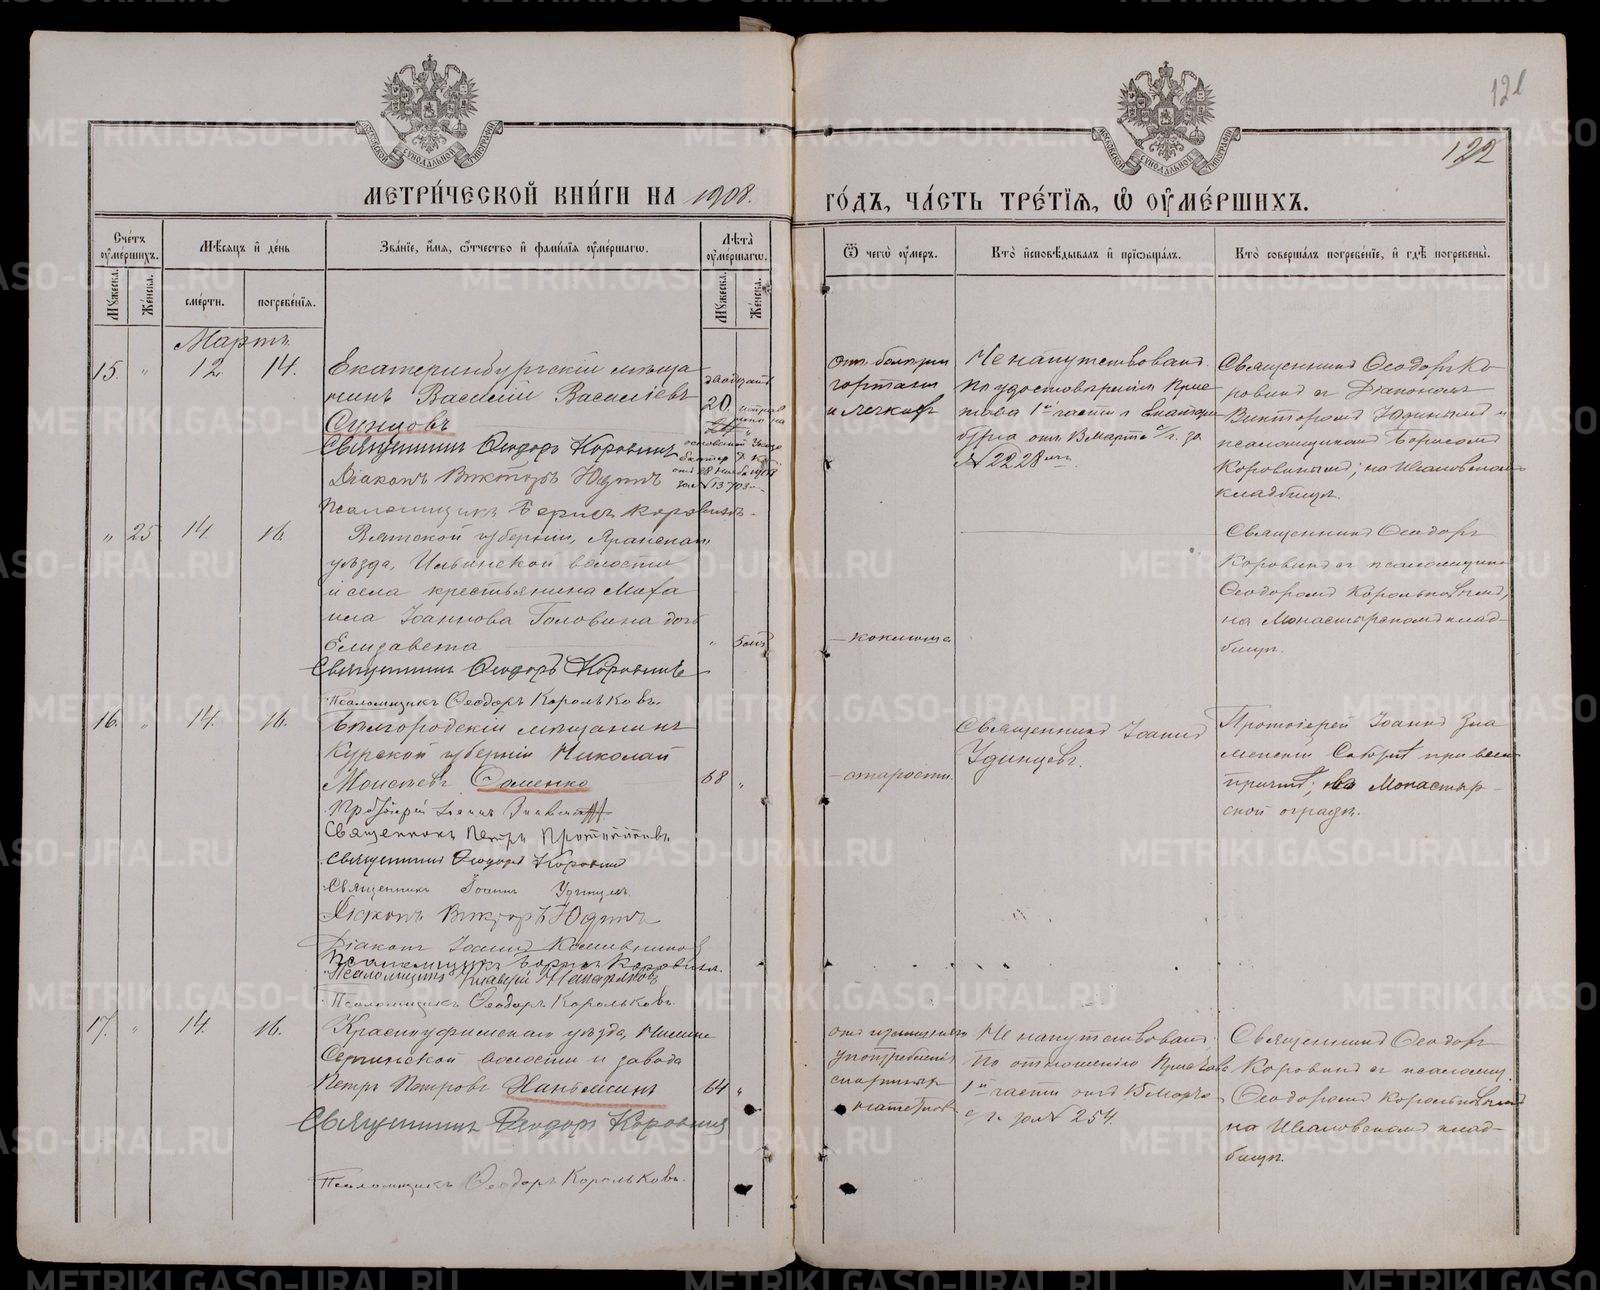 121
122
МЕТРИ́ЧЕСКОЙ КНИ́ГИ НА 1908.
ГО́ДЪ, ЧА́СТЬ ТРЕ́ТІѦ, Ѡ҆ ОУ҆МЕ́РШИХЪ.
Сче́тъ оу҆ме́ршихъ.
Мѣ́сяцъ и҆ де́нь
Зва́ніе, и҆́мѧ, ѻ҆́тчество и҆ фами́лїѧ оу҆ме́ршагѡ.
Лѣ́та оу҆ме́ршагѡ.
Ѿ чегѡ̀ оу҆́меръ.
Кто̀ и҆сповѣ́дывалъ и҆ прїѡбща́лъ.
Кто̀ соверша́лъ погребе́нїе, и҆ гдѣ̀ погребены̀.
Мꙋ́жеска.
Же́нска.
сме́рти.
погребе́нїѧ.
Мꙋ́жеска.
Же́нска.
Мартъ
15. " 12. 14.
Екатеринбургскій мѣща
нинъ Василій Васильевъ
Сунцовъ
двадцать
20.
Священникъ Ѳеодоръ Коровинъ
Діаконъ Викторъ Юдинъ
Псаломщикъ Борисъ Коровинъ.
отъ болѣзни
гортани
и легкихъ
Не напутствованъ.
По удостовѣренію Прис
тава 1й части г. Екатерин
бурга отъ 13 Марта с/г. за
№ 2228
Священникъ Ѳеодоръ Ко
ровинъ съ Діакономъ
Викторомъ Юдинымъ и
псаломщикомъ Борисомъ
Коровинымъ; на Ивановскомъ
кладбищѣ.
" 25 14. 16.
Вятской губерніи, Яранскаго
уѣзда, Ильинской волости
и села крестьянина Миха
ила Іоаннова Головина дочь
Елизавета
"
Священникъ Ѳеодоръ Коровинъ
Псаломщикъ Ѳеодоръ Корольковъ.
коклюша
Священникъ Ѳеодоръ
Коровинъ съ псаломщик
Ѳеодоромъ Корольковымъ,
на Монастырскомъ клад-
бищѣ.
16. " 14. 16.
Бѣлгородскій мѣщанинъ
Курской губерніи Николай
Моисеевъ Саменко
68 "
Протоіерей Іоаннъ Знаменскій
Священникъ Петръ
Священникъ Ѳеодоръ Коровинъ
Священникъ Іоаннъ Удинцевъ.
Діаконъ Викторъ Юдинъ
Діаконъ Іоаннъ
Псаломщикъ Борисъ Коровинъ.
Псаломщикъ
Псаломщикъ Ѳеодоръ Корольковъ.
старости.
Священникъ Іоаннъ
Удинцевъ.
Протоіерей Іоаннъ Зна
менскій Соборнѣ при всемъ
причтѣ; въ Монастыр-
ской оградѣ.
17. " 14. 16.
Красноуфимскаго уѣзда, Нижне
Сергинской волости и завода
Петръ Петровъ
64 "
Священникъ Ѳеодоръ Коровинъ
Псаломщикъ Ѳеодоръ Корольковъ.
отъ излишняго
употребленія
спиртныхъ
напитковъ
Не напутствованъ.
По отношенію Пристава
1й части отъ 15 Марта
с/г. за № 254.
Священникъ Ѳеодоръ
Коровинъ съ псаломщ.
Ѳеодоромъ Корольковымъ
на Ивановскомъ клад-
бищѣ.
METRIKI.GASO-URAL.RU